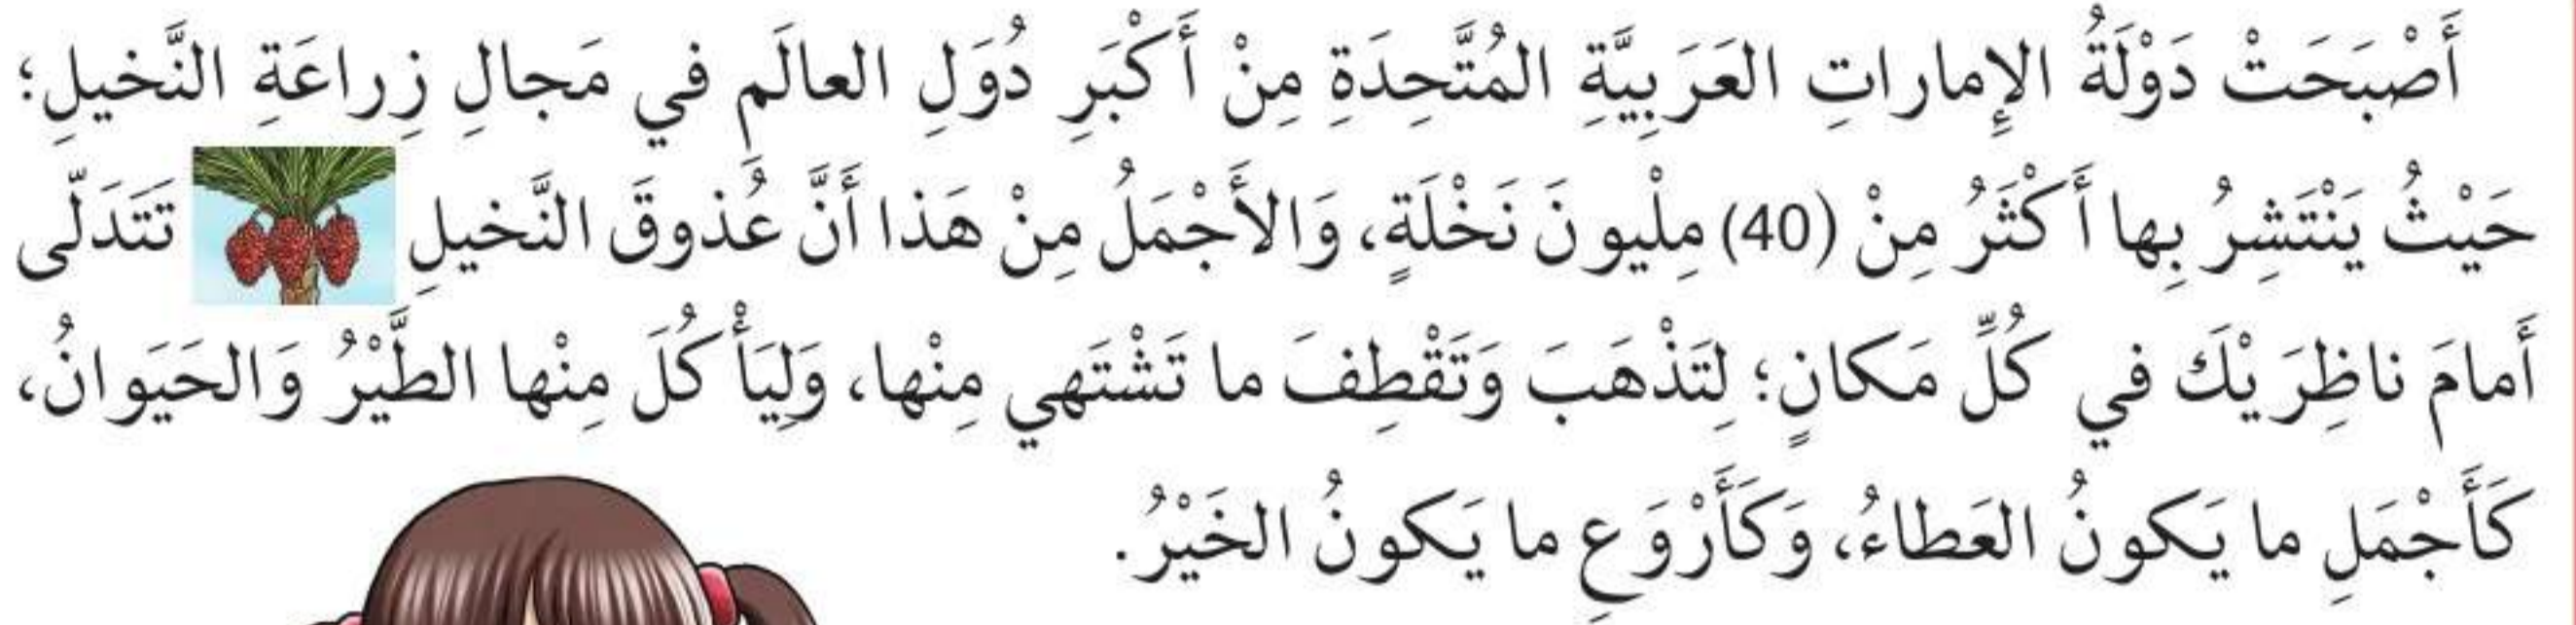 أَصْبَحَتْ دَوْلَةُ الإِماراتِ العَرَبِيَّةِ المُتَّحِدَةِ مِنْ أَكْبَرِ دُوَلِ العالَمِ في مَجالِ زِراعَةِ النَّخيلِ؛
حَيْثُ يَنْتَشِرُ بِها أَكْثَرُ مِنْ (40) مِلْيونَ نَخْلَةٍ، وَالأَجْمَلُ مِنْ هَذا أَنَّ عُذوقَ النَّخيلِ تَتَدَلّى
أَمامَ ناظِرَيْكَ في كُلِّ مَكانٍ؛ لِتَذْهَبَ وَتَقْطِفَ ما تَشْتَهي مِنْها، وَلِيَأْكُلَ مِنْها الطَّيْرُ وَالحَيَوانُ،
كَأَجْمَلِ ما يَكونُ العَطاءُ، وَكَأَرْوَعِ ما يَكونُ الخَيْرُ.